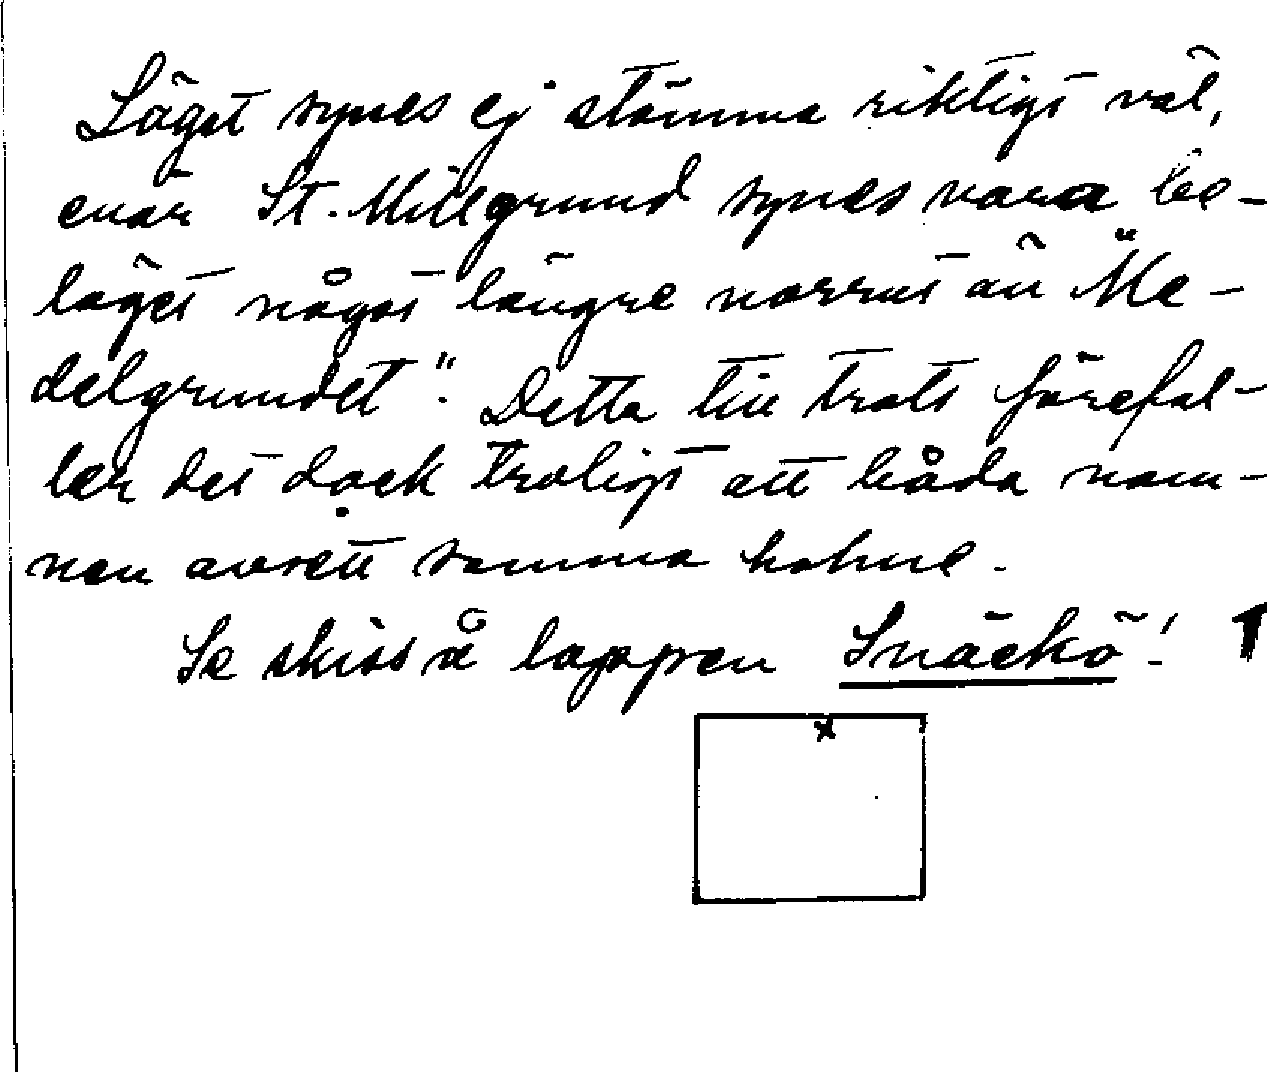 Läget synes ej stämma riktigt väl,
enär St. Millgrund synes vara be-
läget något längre norrut än "Me-
delgrundet". Detta till trots förefal-
ler det dock troligt att båda nam-
nen avsett samma holme.
Se skiss å lappen Snäckö! 1
x